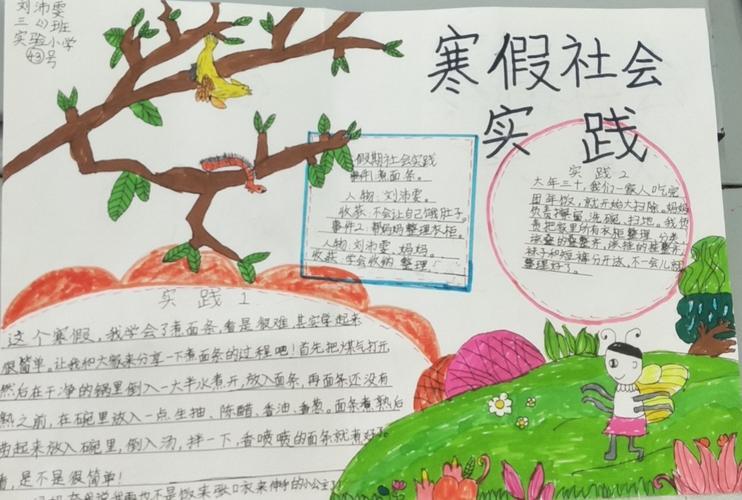 刘沛雯
三(2)班
实验小学
43号
寒假社会
实践
假期社会实践
事件1:煮面条。
人物:刘沛雯。
收获:不会让自己饿肚子。
事件2:帮妈妈整理衣柜。
人物:刘沛雯、妈妈。
收获:学会收纳整理!
实践2
大年三十,我们一家人吃完
团年饭,就开始大扫除。妈妈
负责擦窗、洗碗、扫地。我负
责把家里所有衣柜整理、分类
该叠的叠整齐,该挂的挂整齐
袜子和短裤分开放,不一会儿就
整理好了。
实践1
这个寒假,我学会了煮面条,看是很难,其实学起来
很简单。让我和大家来分享一下煮面条的过程吧!首先把煤气打开
然后在干净的锅里倒入一大半水煮开,放入面条,再面条还没有
熟之前,在碗里放入一点生抽、陈醋、香油、香葱。面条煮熟后
捞起来放入碗里,倒入汤,拌一下,香喷喷的面条就煮好
看,是不是很简单!
饭来张口衣来伸手的小公主了